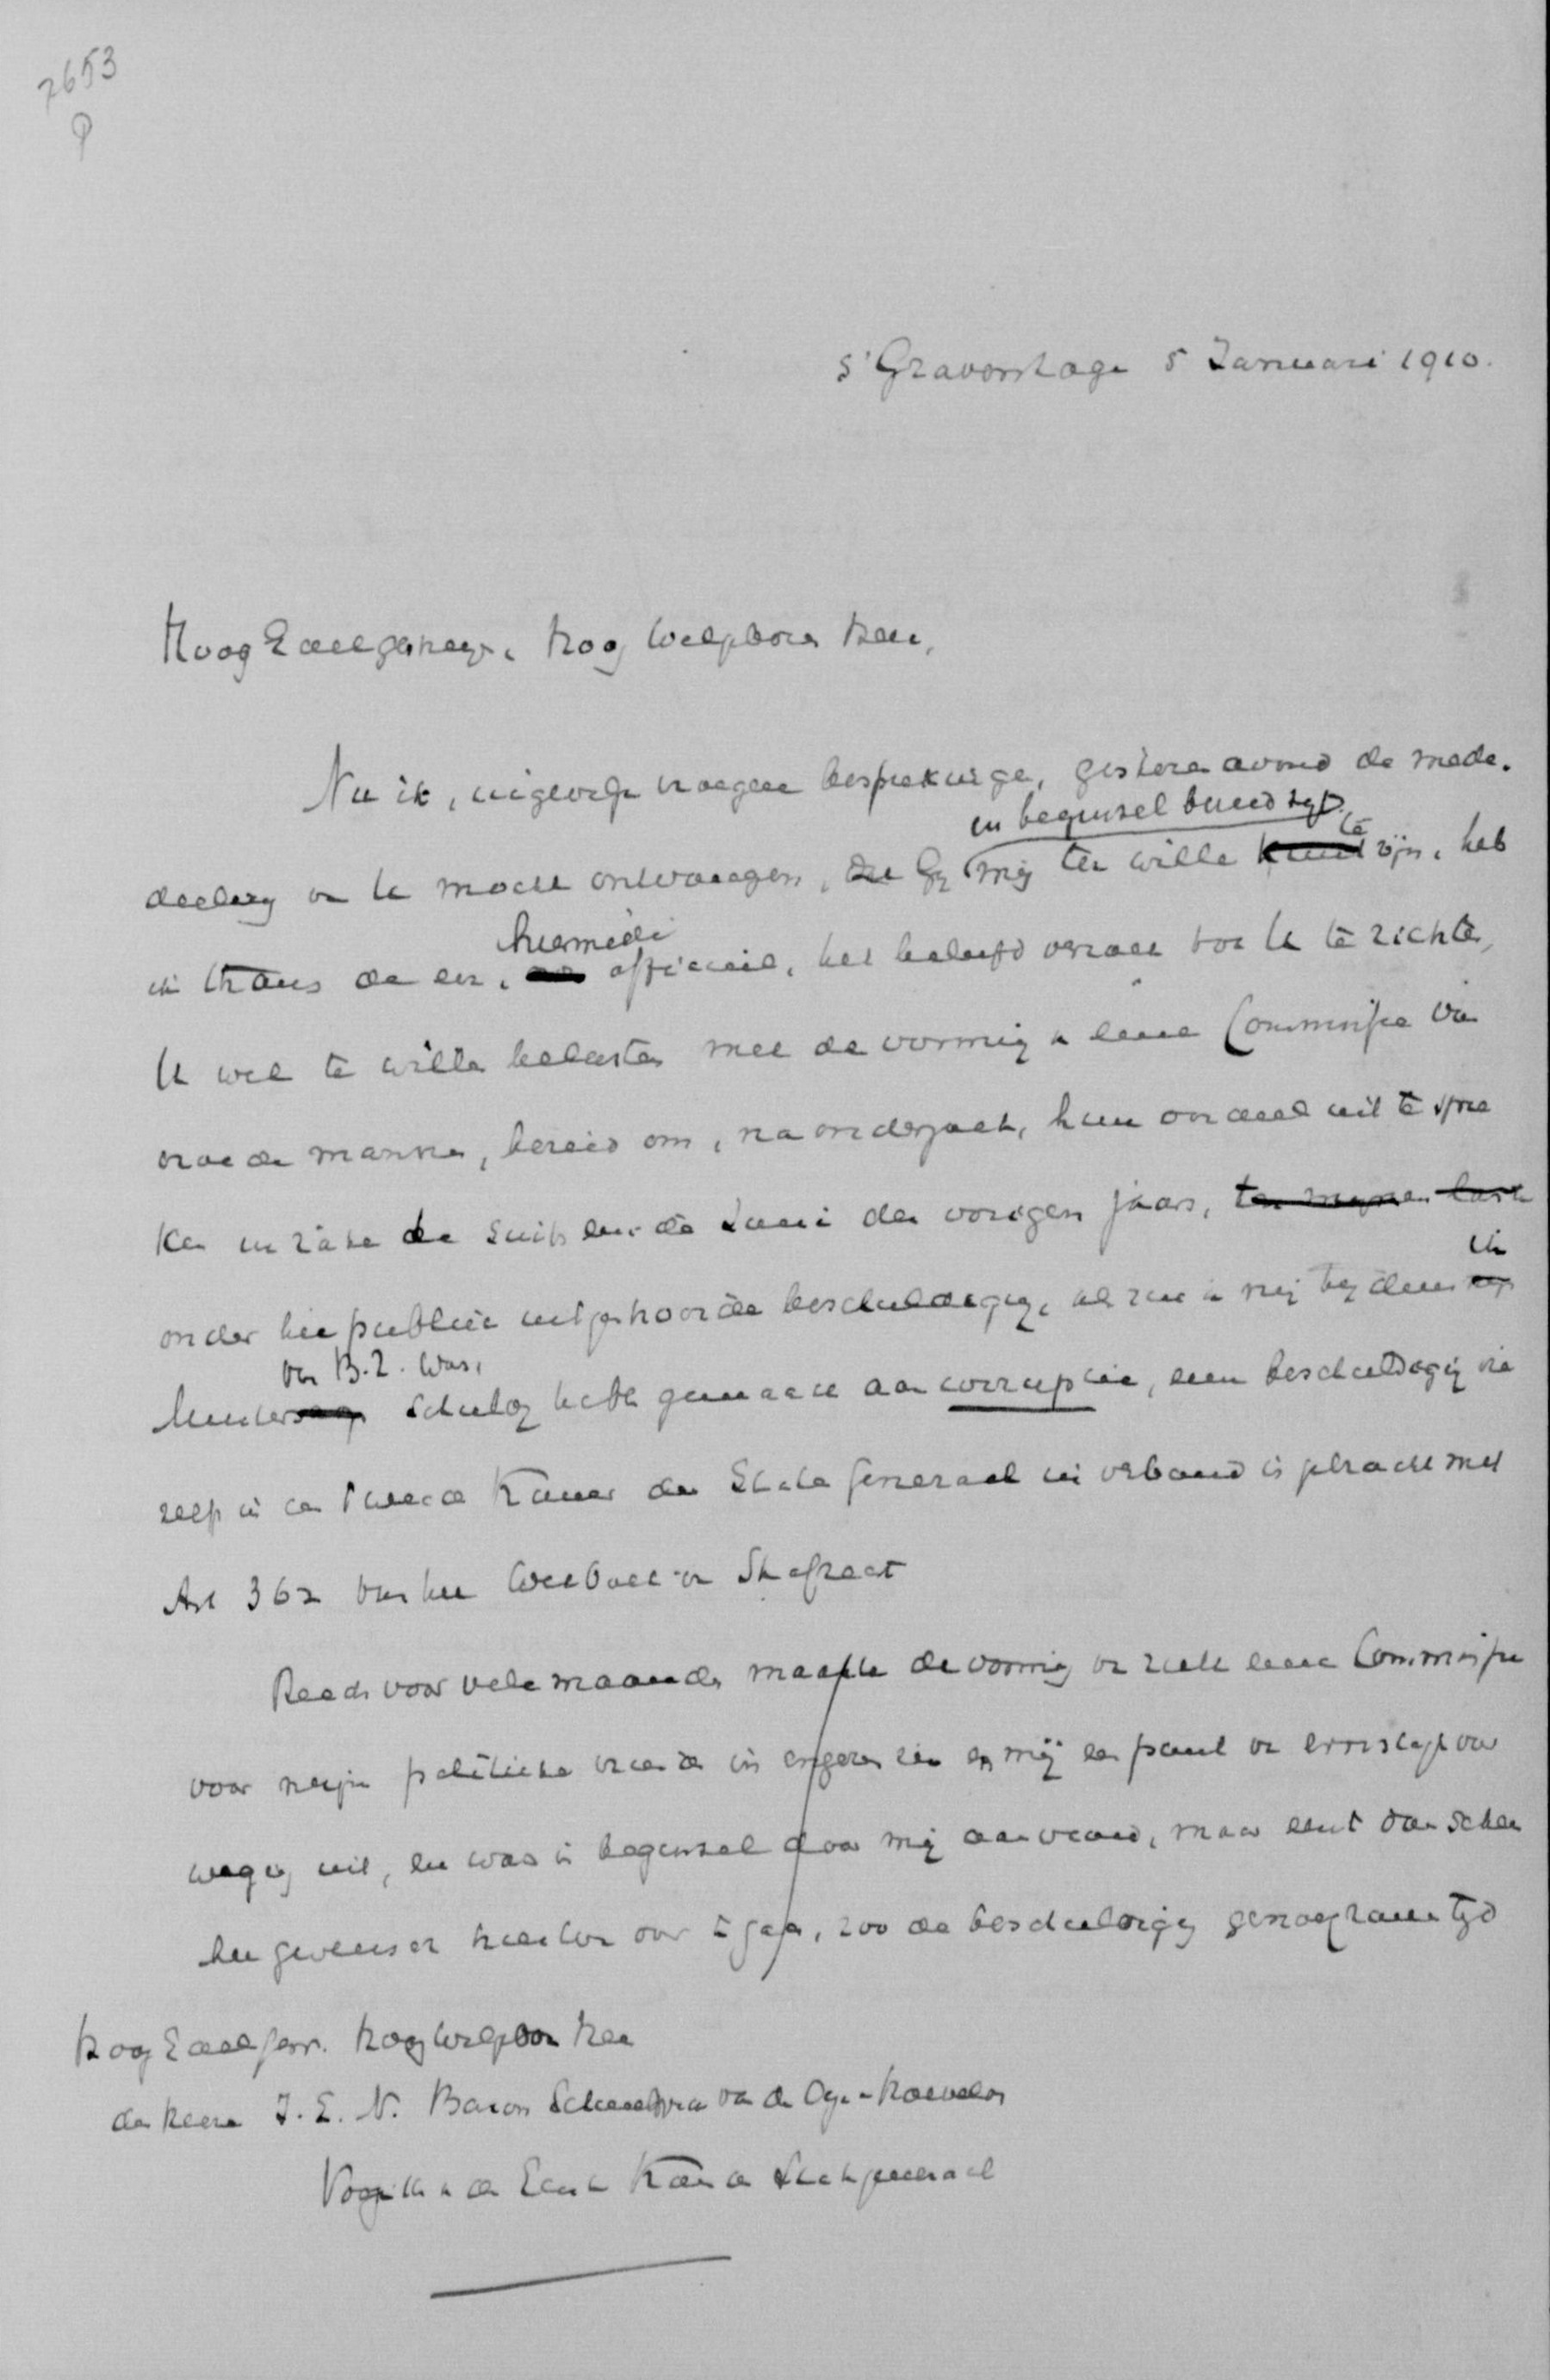 2653
φ
s'Gravenhage 5 Januari 1910.
HoogEdelgestrenge, Hoog Welgeboren Heer,
Nu ik, ingevolge vroegere besprekingen, gisteren avond de mede-
in beginsel bereid zijt
deeling van U mocht ontvangen, dat Gij mij ter wille te zijn, heb
hiermede
ik thans de eer, officieel, het beleefd verzoek tot U te richten,
U wel te willen belasten met de vorming van eene Commissie van
vroede mannen, bereid om, na onderzoek, hun oordeel uit te spre
ken in zake de sinds einde Juni des vorigen jaars, ten mijnen laste
ik
onder het publiek uitgestrooide beschuldiging, als zou ik mij tijdens
van B.Z. was,
Minister schuldig hebben gemaakt aan corruptie, eene beschuldiging die
zelfs in de Tweede Kamer der Staten Generaal in verband is gebracht met
Art 362 van het Wetboek van Strafrecht
Reeds voor vele maanden maakte de vorming van zulk eene Commissie
voor mijne politieke vrienden in engeren zin en mij een punt van ernstige over
weging uit, en was in beginsel door mij aanvaard, maar eerst dan scheen
het gewenscht hiertoe over te gaan, zoo de beschuldiging genoegzame tijd
HoogEdelGestr. HoogWelgeboren Heer
den Heere J. E. N. Baron Schimmelpenninck van der Oye van Hoevelaken
Voorzitter van de Eerste Kamer der Staten generaal